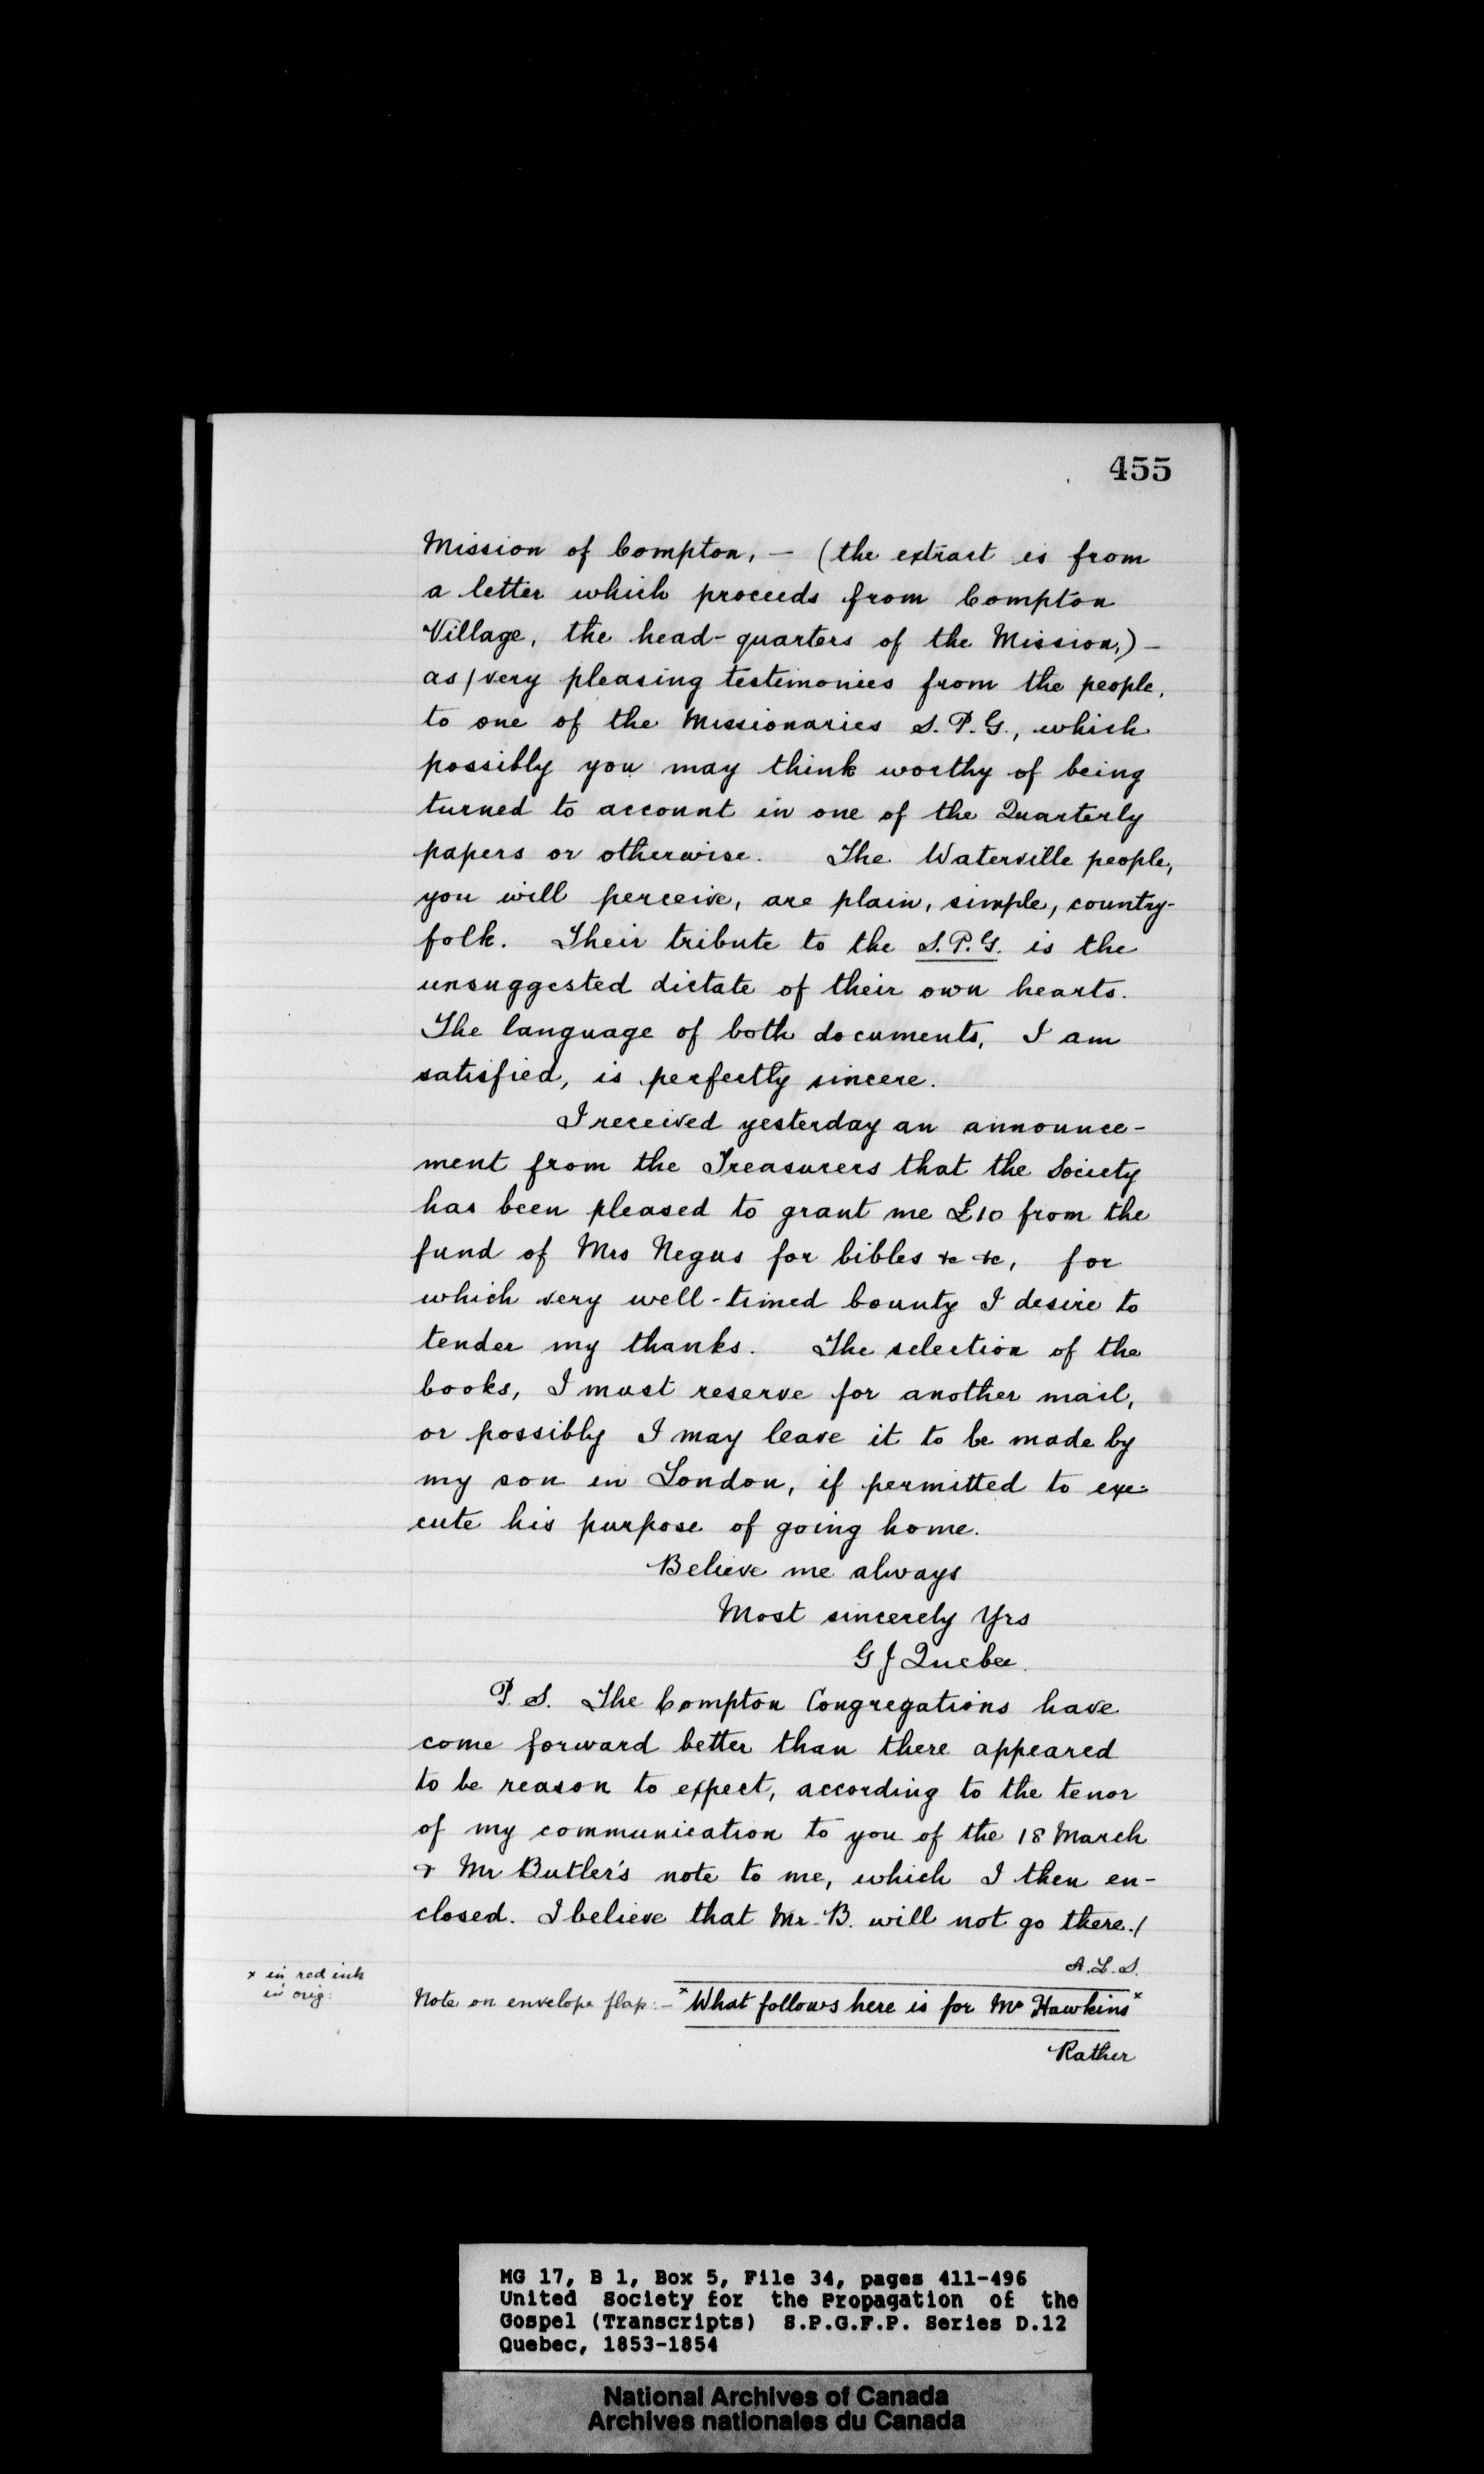 455
Mission of Compton, — (the extract is from
a letter which proceeds from Compton
Village, the head-quarters of the Mission,) —
as / very pleasing testimonies from the people,
to one of the Missionaries S. P. G., which
possibly you may think worthy of being
turned to account in one of the Quarterly
papers or otherwise. The Waterville people,
you will perceive, are plain, simple, country-
folk. Their tribute to the S. P. G. is the
unsuggested dictate of their own hearts.
The language of both documents, I am
satisfied, is perfectly sincere.
I received yesterday an announce-
ment from the Treasurers that the Society
has been pleased to grant me £10 from the
fund of Mrs Negus for bibles &c &c, for
which very well-timed bounty I desire to
tender my thanks. The selection of the
books, I must reserve for another mail,
or possibly I may leave it to be made by
my son in London, if permitted to exe-
cute his purpose of going home.
Believe me always
Most sincerely Yrs
G J Quebec.
P. S. The Compton Congregations have
come forward better than there appeared
to be reason to expect, according to the tenor
of my communication to you of the 18 March
& Mr Butler's note to me, which I then en-
closed. I believe that Mr. B. will not go there. /
A. L. S.
x in red ink
in orig:
Note on envelope flap: — x What follows here is for Mr Hawkins x
Rather
MG 17, B 1, Box 5, File 34, pages 411-496
United Society for the Propagation of the
Gospel (Transcripts) S.P.G.F.P. Series D.12
Quebec, 1853-1854
National Archives of Canada
Archives nationales du Canada